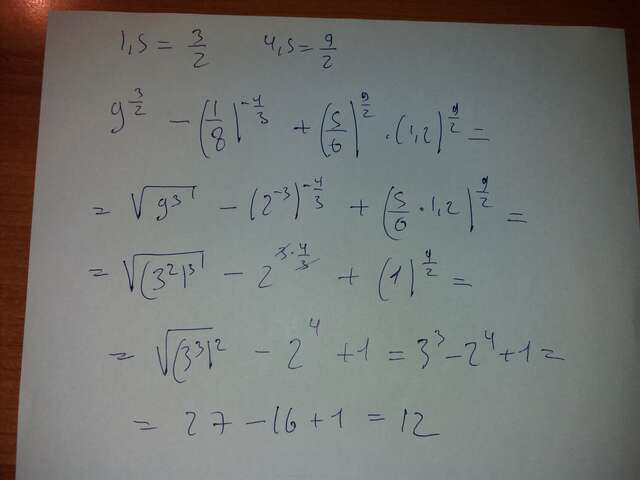 1,5 = 3/2    4,5 = 9/2
9^(3/2) − (1/8)^(−4/3) + (5/6)^(9/2) · (1,2)^(9/2) =
= √(9^3) − (2^(−3))^(−4/3) + (5/6 · 1,2)^(9/2) =
= √((3^2)^3) − 2^(3·4/3) + (1)^(9/2) =
= √((3^3)^2) − 2^4 + 1 = 3^3 − 2^4 + 1 =
= 27 − 16 + 1 = 12